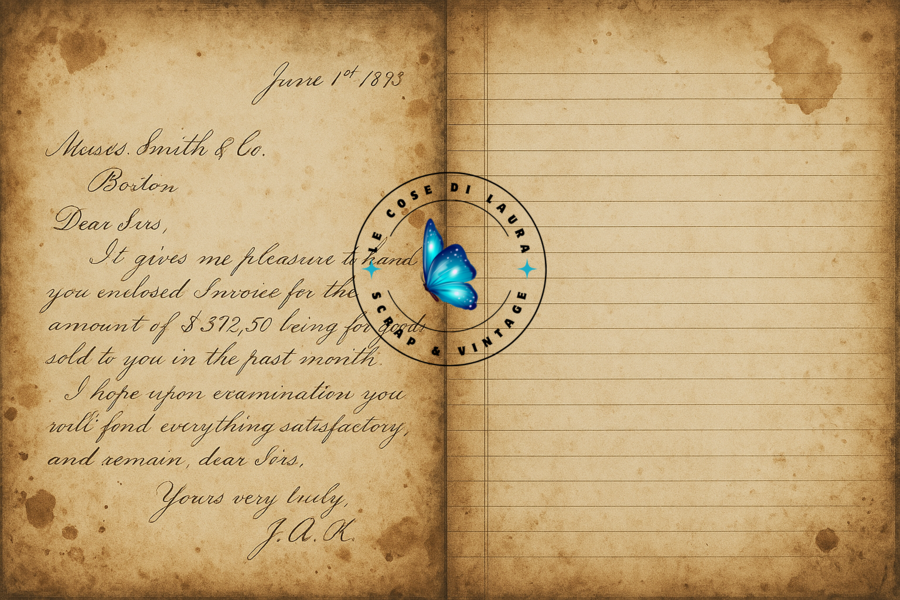 June 1st 1893
Messrs. Smith & Co.
Boston
Dear Sirs,
It gives me pleasure to hand
you enclosed Invoice for the
amount of $372,50 being for goods
sold to you in the past month.
I hope upon examination you
will fond everything satisfactory,
and remain, dear Sirs,
Yours very truly,
J.A.K.
LE COSE DI LAURA
SCRAP & VINTAGE